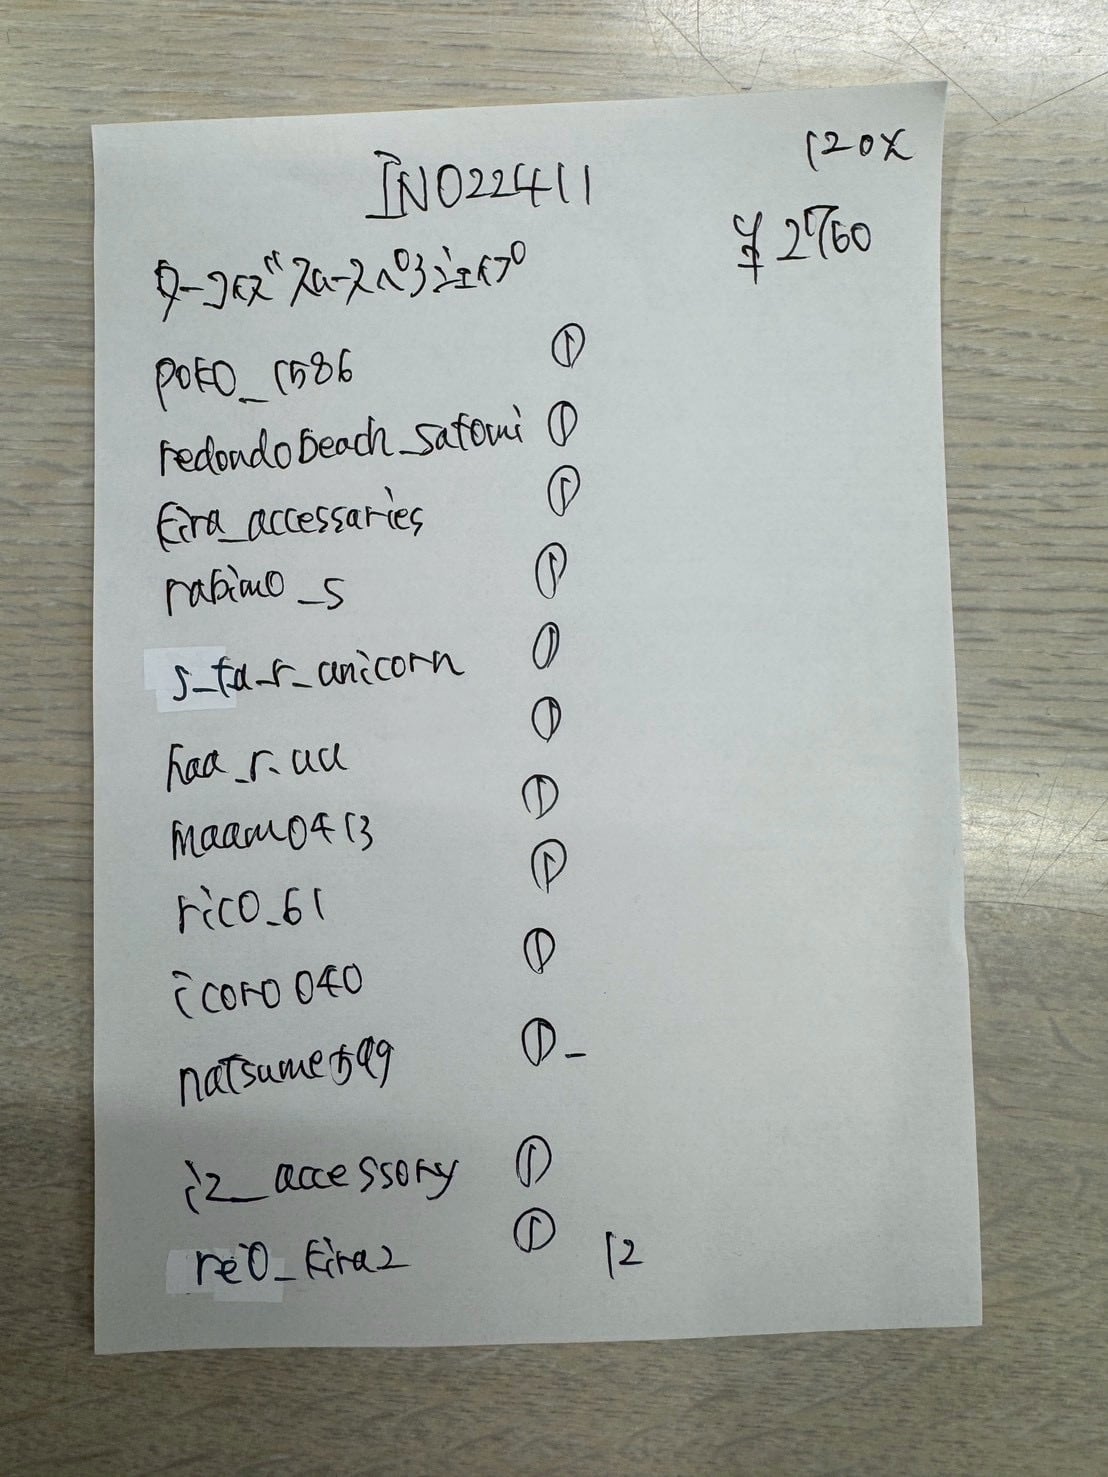 IN022411
120×
¥2760
ターコイズ スムースペつ3連タイプ
poko_1586 ①
redondobeach_satomi ①
kira_accessaries ①
rabimo_s ①
s_ta_r_unicorn ①
haa_r.uu ①
maamo413 ①
rico_61 ①
icoro040 ①
natsume599 ①_
iz_accessory ①
reio_kira2 ① 12